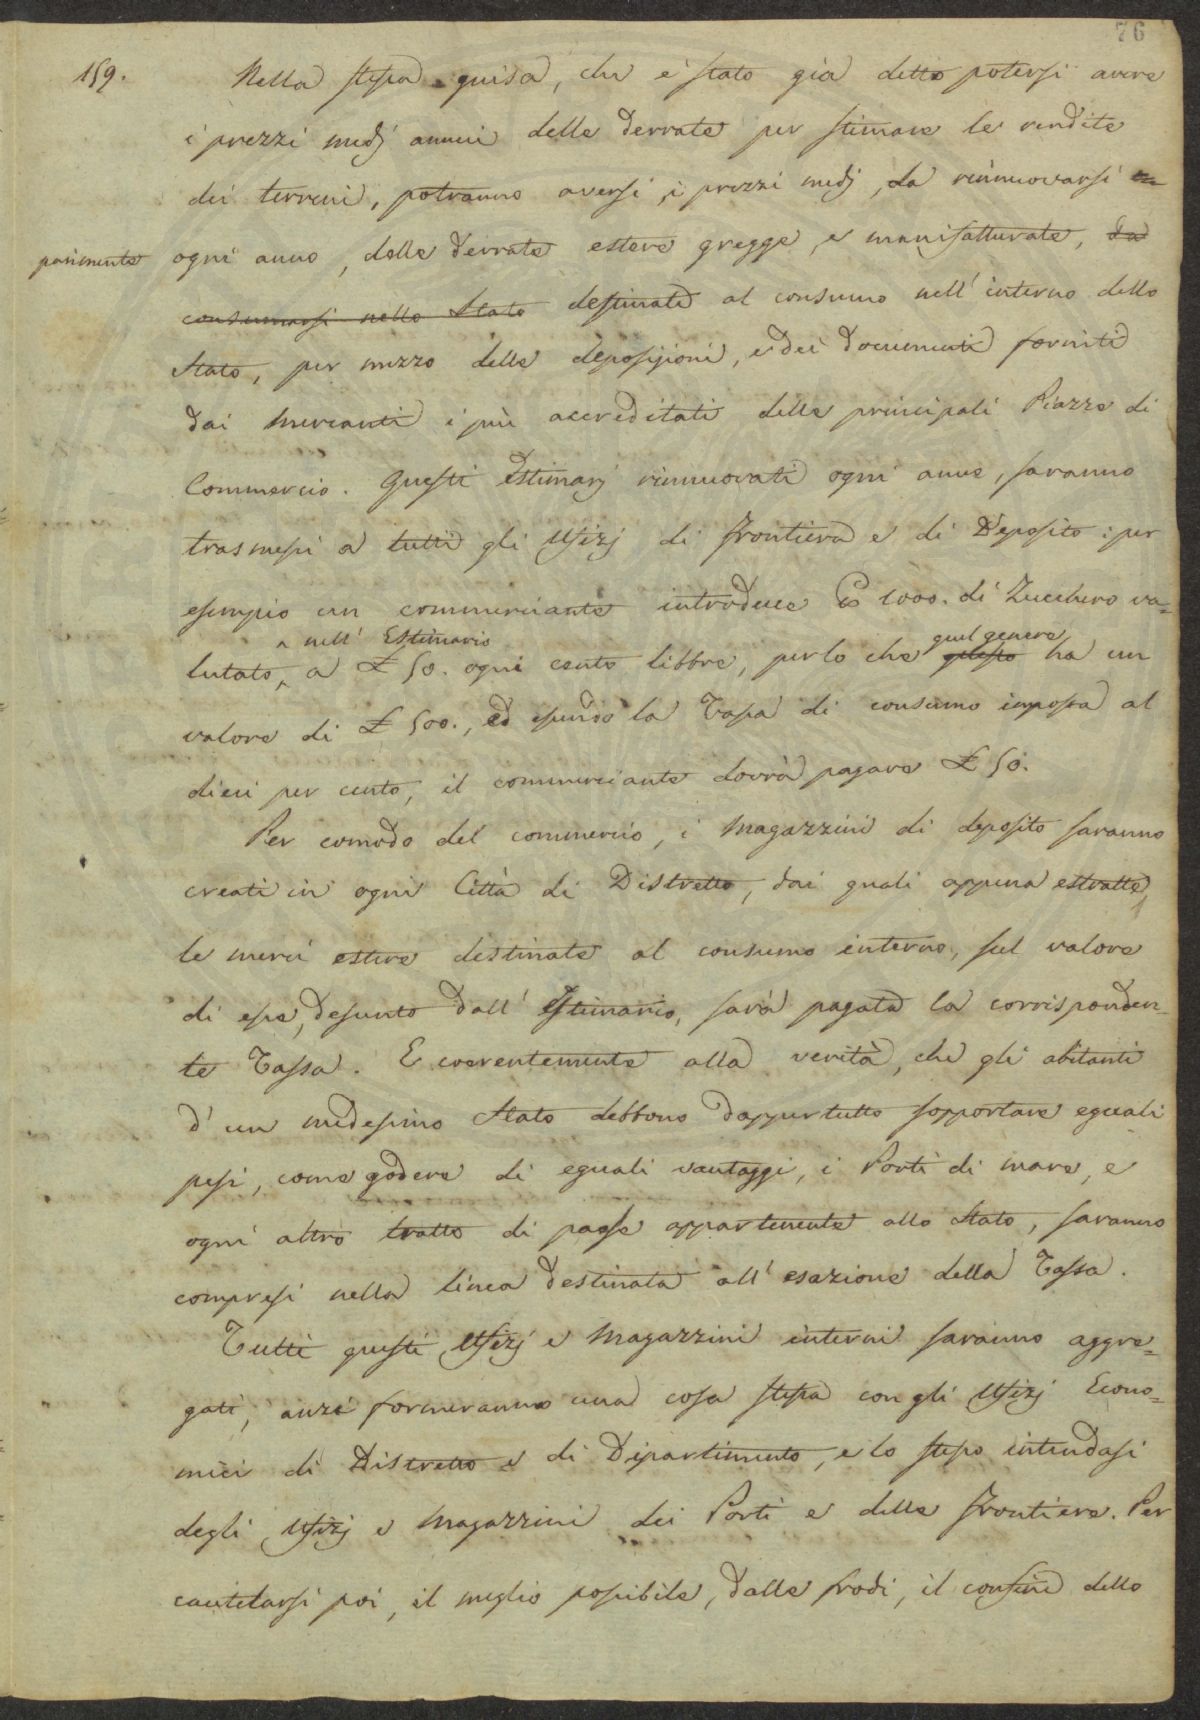 76
159. Nella stessa guisa, che è stato già detto potersi avere
i prezzi medj annui delle derrate per stimare le rendite
dei terreni, potranno aversi, i prezzi medj, da rinnuovarsi
parimente ogni anno, delle derrate estere gregge, e manifatturate, da
consumarsi nello Stato destinate al consumo nell' interno dello
Stato, per mezzo delle deposizioni, e dei documenti forniti
dai mercanti i più accreditati delle principali Piazze di
Commercio. Questi Estimarj rinnuovati ogni anno, saranno
trasmessi a tutti gli Ufizj di frontiera e di Deposito: per
esempio un commerciante introduce 1000. di Zucchero va=
^ nell' Estimario quel genere
lutato, ^ a £ 50. ogni cento libbre, perlo che questo ha un
valore di £ 500., ed essendo la Tassa di consumo imposta al
dieci per cento, il commerciante dovrà pagare £ 50.
Per comodo del commercio, i magazzini di deposito saranno
creati in ogni Città di Distretto, dai quali appena estratte,
le merci estere destinate al consumo interno, sul valore
di esse, desunto dall' Estimario, sarà pagata la corrisponden=
te Tassa. E coerentemente alla verità, che gli abitanti
d' un medesimo Stato debbono dappertutto sopportare eguali
pesi, come godere di eguali vantaggi, i Porti di mare, e
ogni altro tratto di paese appartenente allo Stato, saranno
compresi nella linea destinata all' esazione della Tassa.
Tutti questi Ufizj e Magazzini interni saranno aggre=
gati, anzi formeranno una cosa stessa con gli Ufizj Econo=
mici di Distretto e di Dipartimento, e lo stesso intendasi
degli Ufizj e Magazzini dei Porti e delle frontiere. Per
cautelarsi poi, il meglio possibile, dalle frodi, il confine dello